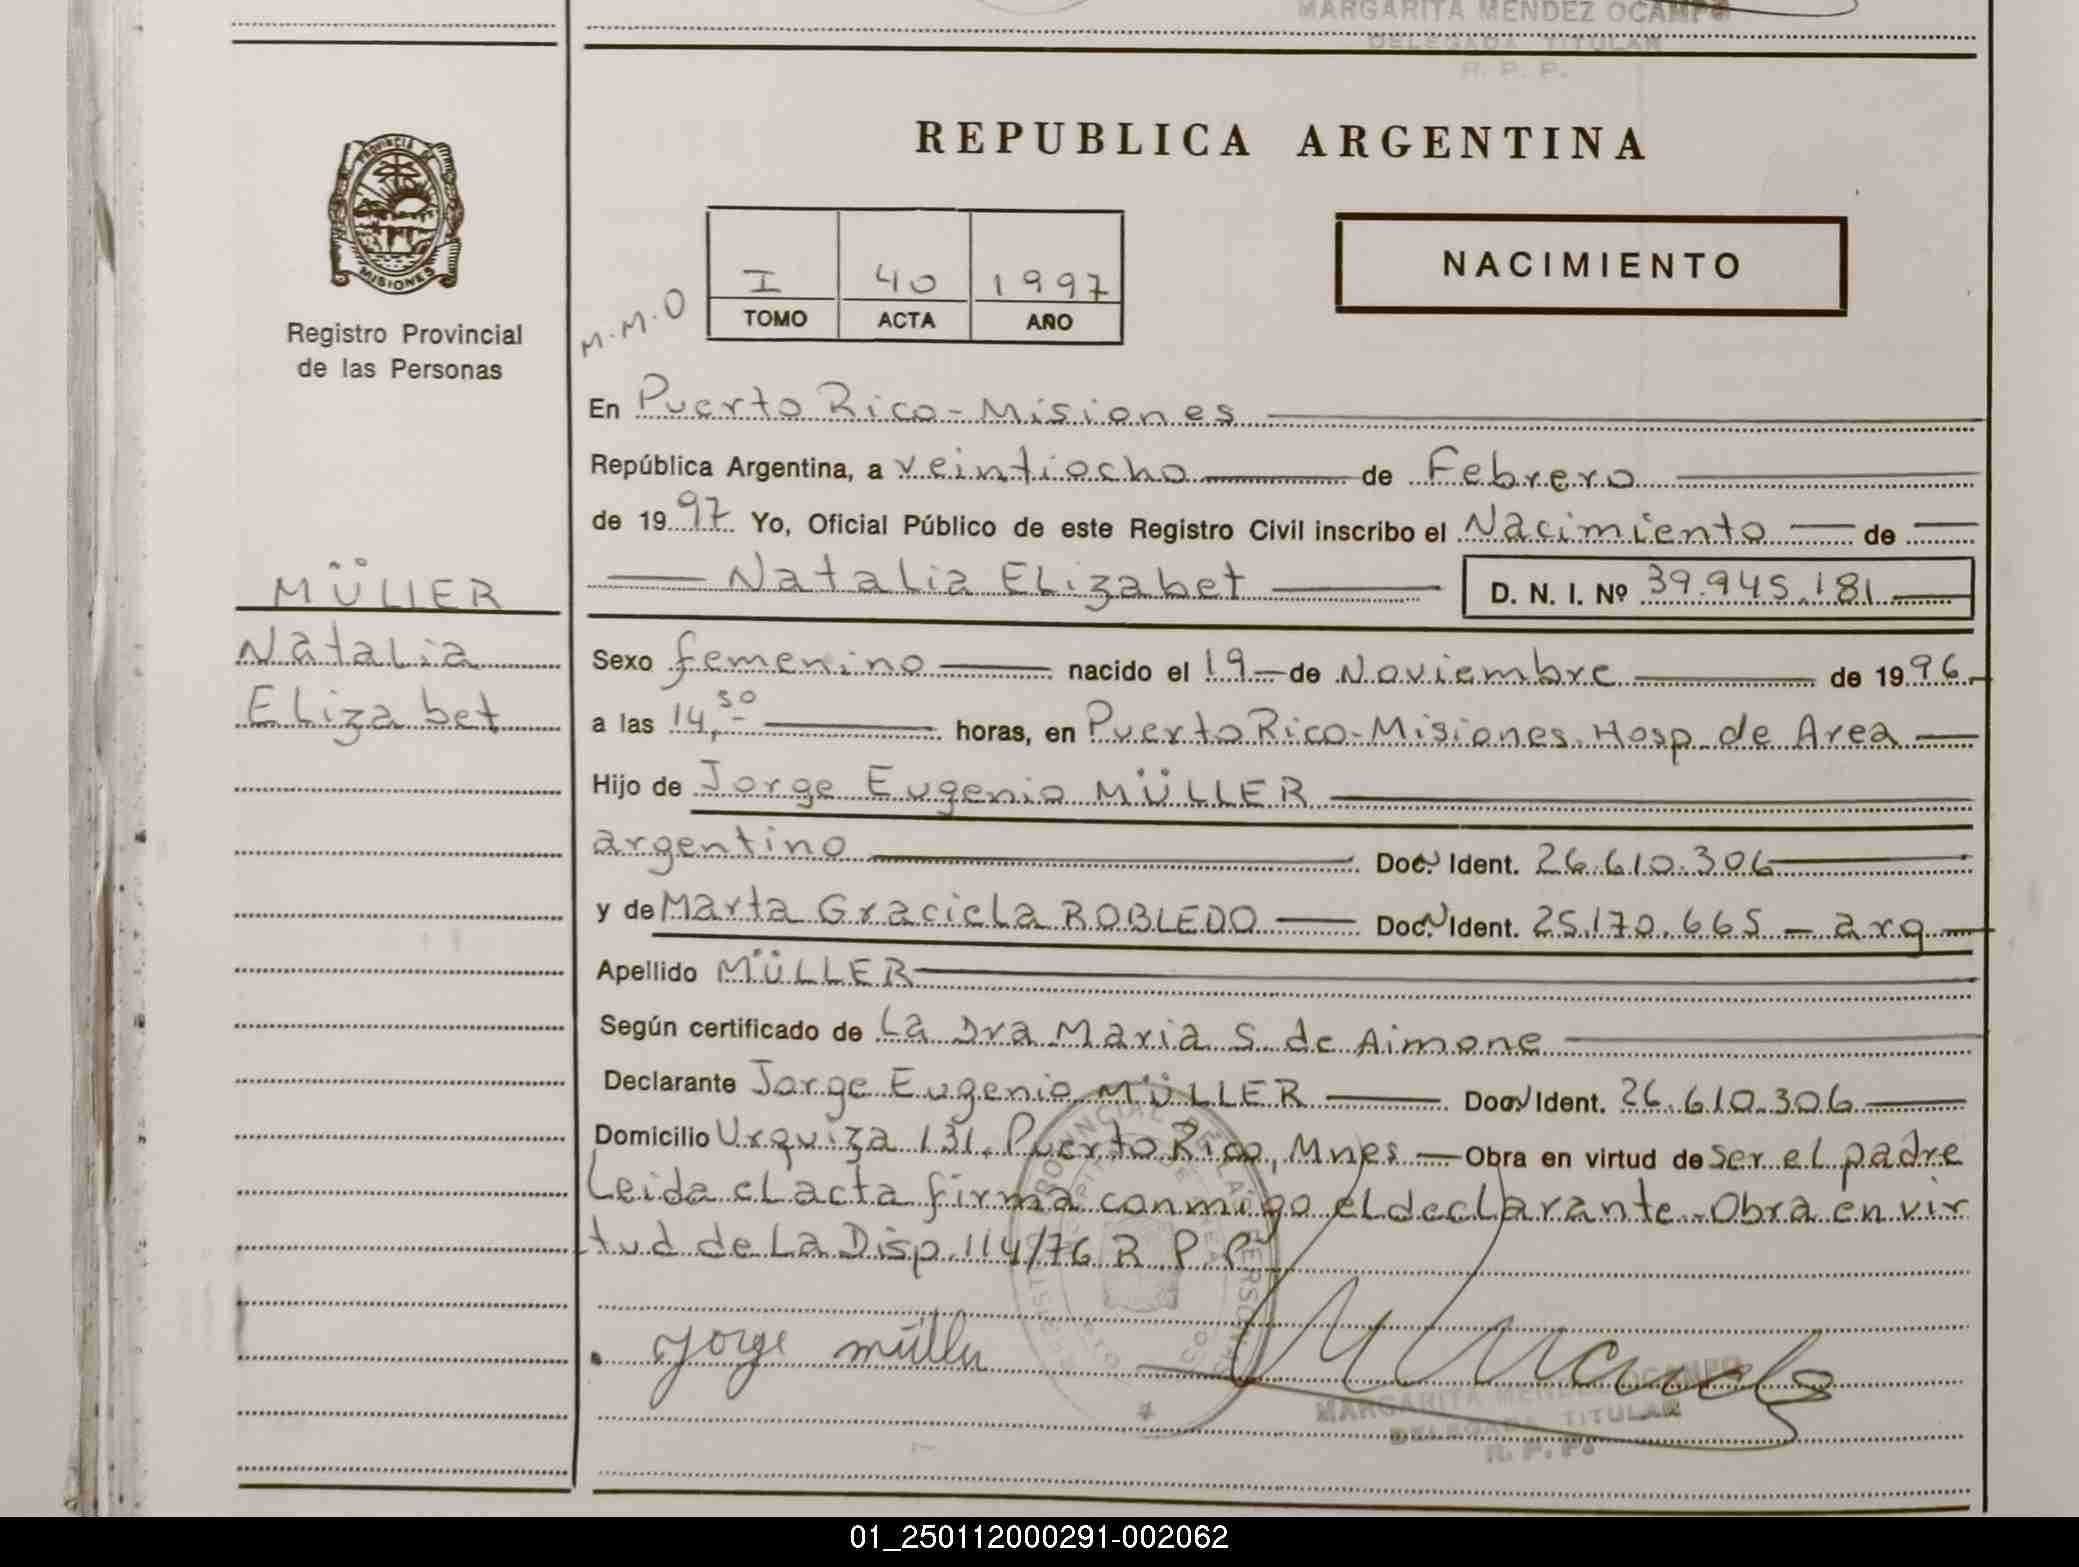 MARGARITA MENDEZ OCAMPO
DELEGADA TITULAR
R. P. P.
PROVINCIA DE
MISIONES
Registro Provincial
de las Personas
MÜLLER
Natalia
Elizabet
REPUBLICA ARGENTINA
NACIMIENTO
M.M.O
I 40 1997
TOMO ACTA AÑO
En Puerto Rico - Misiones
República Argentina, a veintiocho de Febrero
de 1997 Yo, Oficial Público de este Registro Civil inscribo el Nacimiento de
Natalia Elizabet D. N. I. Nº 39.945.181
Sexo femenino nacido el 19 de Noviembre de 1996
a las 14,50 horas, en Puerto Rico - Misiones Hosp. de Area
Hijo de Jorge Eugenio MÜLLER
argentino Doc. N Ident. 26.610.306
y de Marta Graciela ROBLEDO Doc. N Ident. 25.170.665 - arg
Apellido MÜLLER
Según certificado de La Dra Maria S. de Aimone
Declarante Jorge Eugenio MÜLLER Doc. N Ident. 26.610.306
Domicilio Urquiza 131, Puerto Rico, Mnes - Obra en virtud de ser el padre
Leida el acta firma conmigo el declarante. Obra en vir
tud de La Disp. 114/76 R.P.P
Jorge Müller
MARGARITA MENDEZ OCAMPO
DELEGADA TITULAR
R. P. P.
01_250112000291-002062